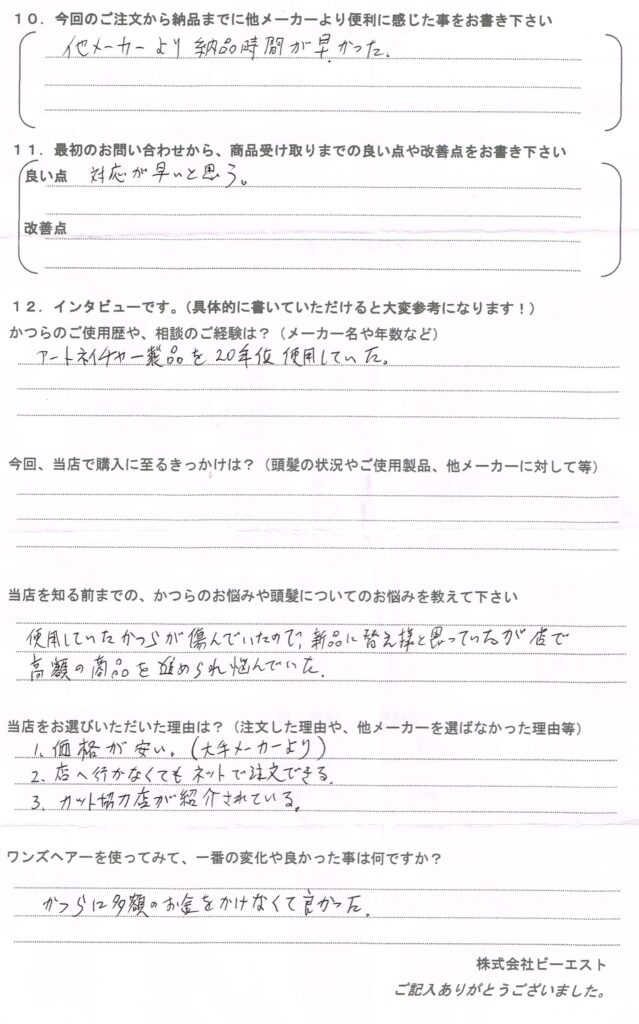 10．今回のご注文から納品までに他メーカーより便利に感じた事をお書き下さい
他メーカーより納品時間が早かった.
11．最初のお問い合わせから、商品受け取りまでの良い点や改善点をお書き下さい
良い点 対応が早いと思う。
改善点
12．インタビューです。（具体的に書いていただけると大変参考になります！）
かつらのご使用歴や、相談のご経験は？（メーカー名や年数など）
アートネイチャー製品を20年位使用していた。
今回、当店で購入に至るきっかけは？（頭髪の状況やご使用製品、他メーカーに対して等）
当店を知る前までの、かつらのお悩みや頭髪についてのお悩みを教えて下さい
使用していたかつらが傷んでいたので、新品に替え様と思っていたが店で
高額の商品を進められ悩んでいた.
当店をお選びいただいた理由は？（注文した理由や、他メーカーを選ばなかった理由等）
1. 価格が安い。（大手メーカーより）
2. 店へ行かなくてもネットで注文できる.
3. カット協力店が紹介されている。
ワンズヘアーを使ってみて、一番の変化や良かった事は何ですか？
かつらに多額のお金をかけなくて良かった.
株式会社ビーエスト
ご記入ありがとうございました。